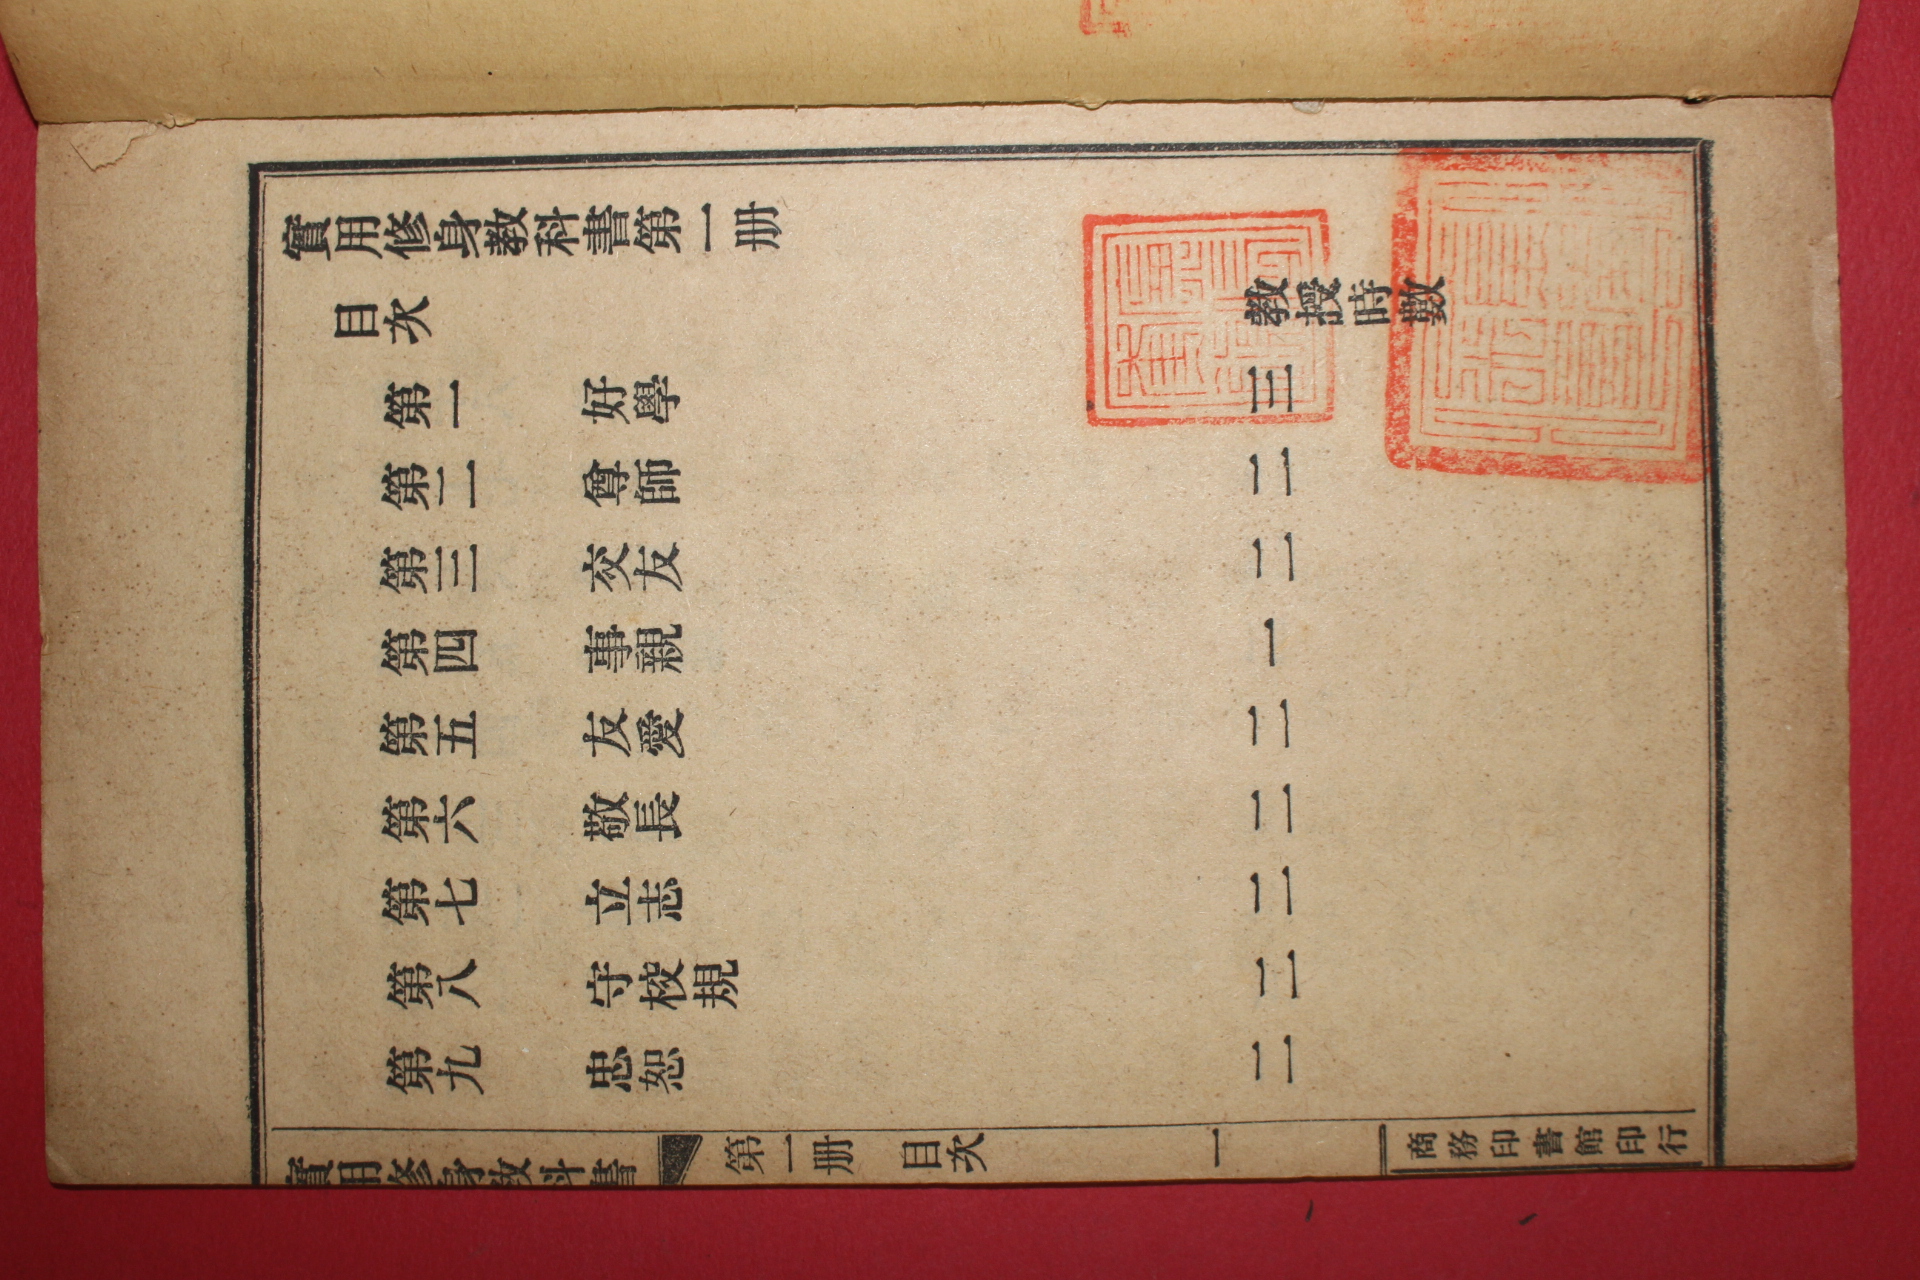 實用修身教科書第一册
目次 教授時數
第一 好學 三
第二 尊師 二
第三 交友 二
第四 事親 一
第五 友愛 二
第六 敬長 二
第七 立志 二
第八 守校規 二
第九 忠恕 二
實用修身教科書 第一册 目次 一 商務印書館印行